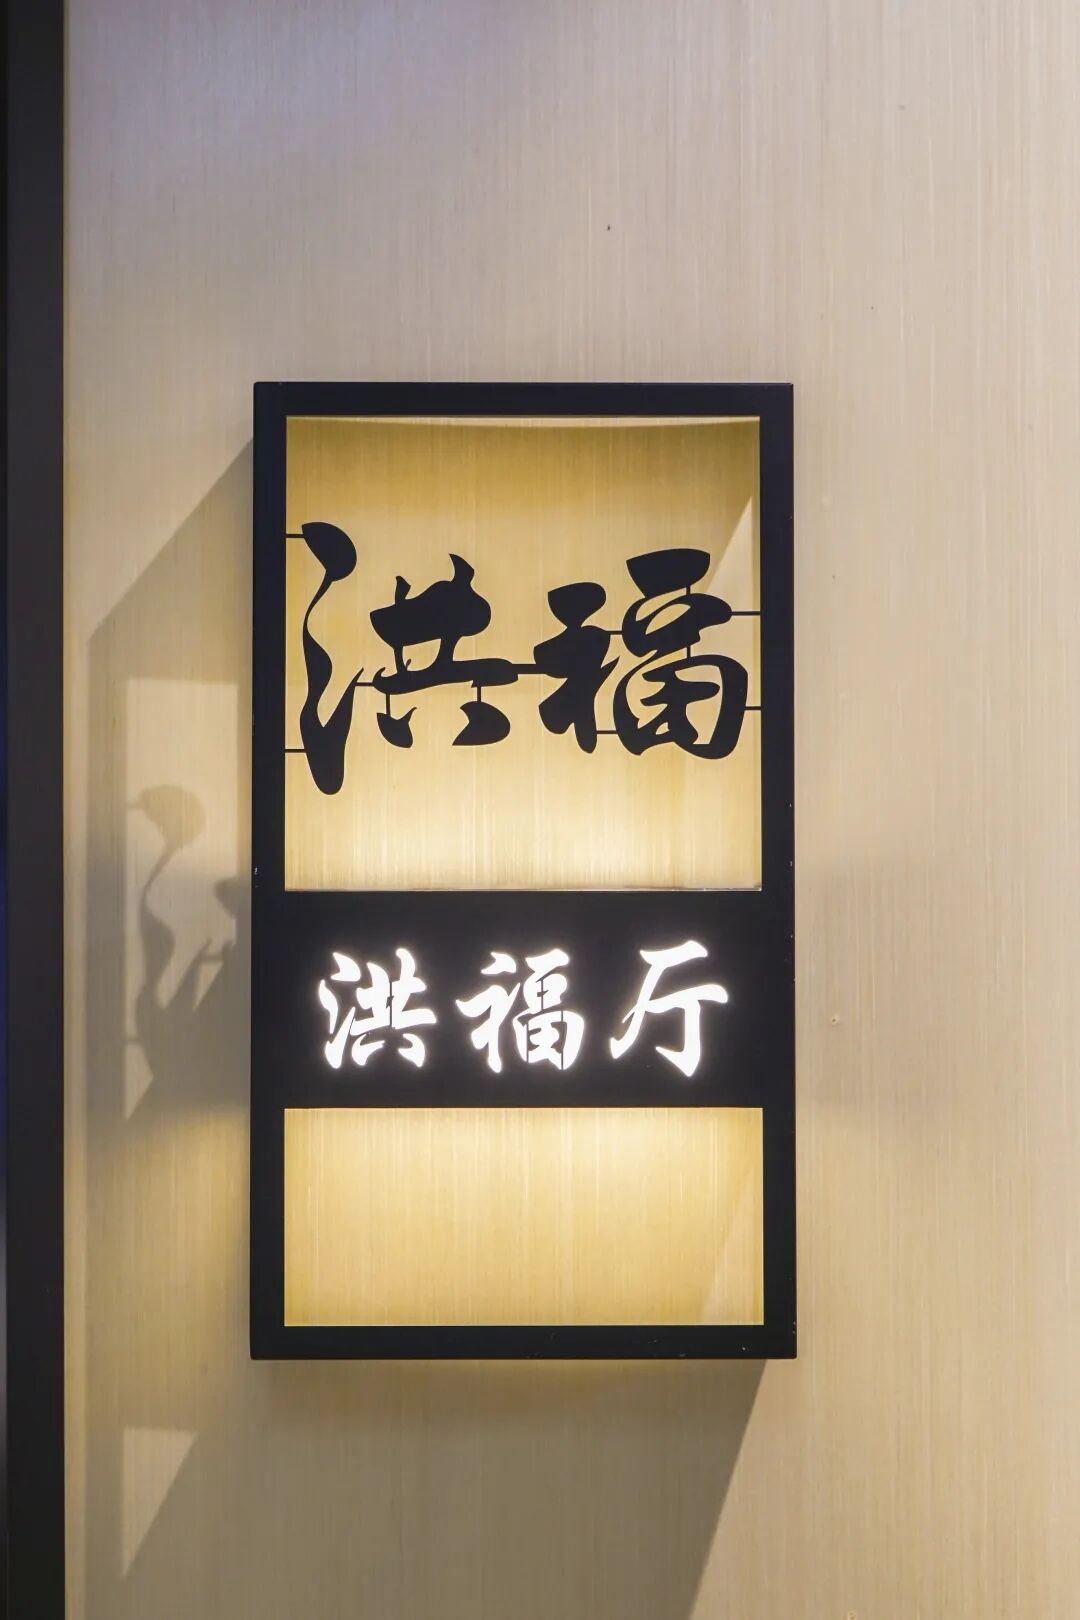 洪福
洪福厅